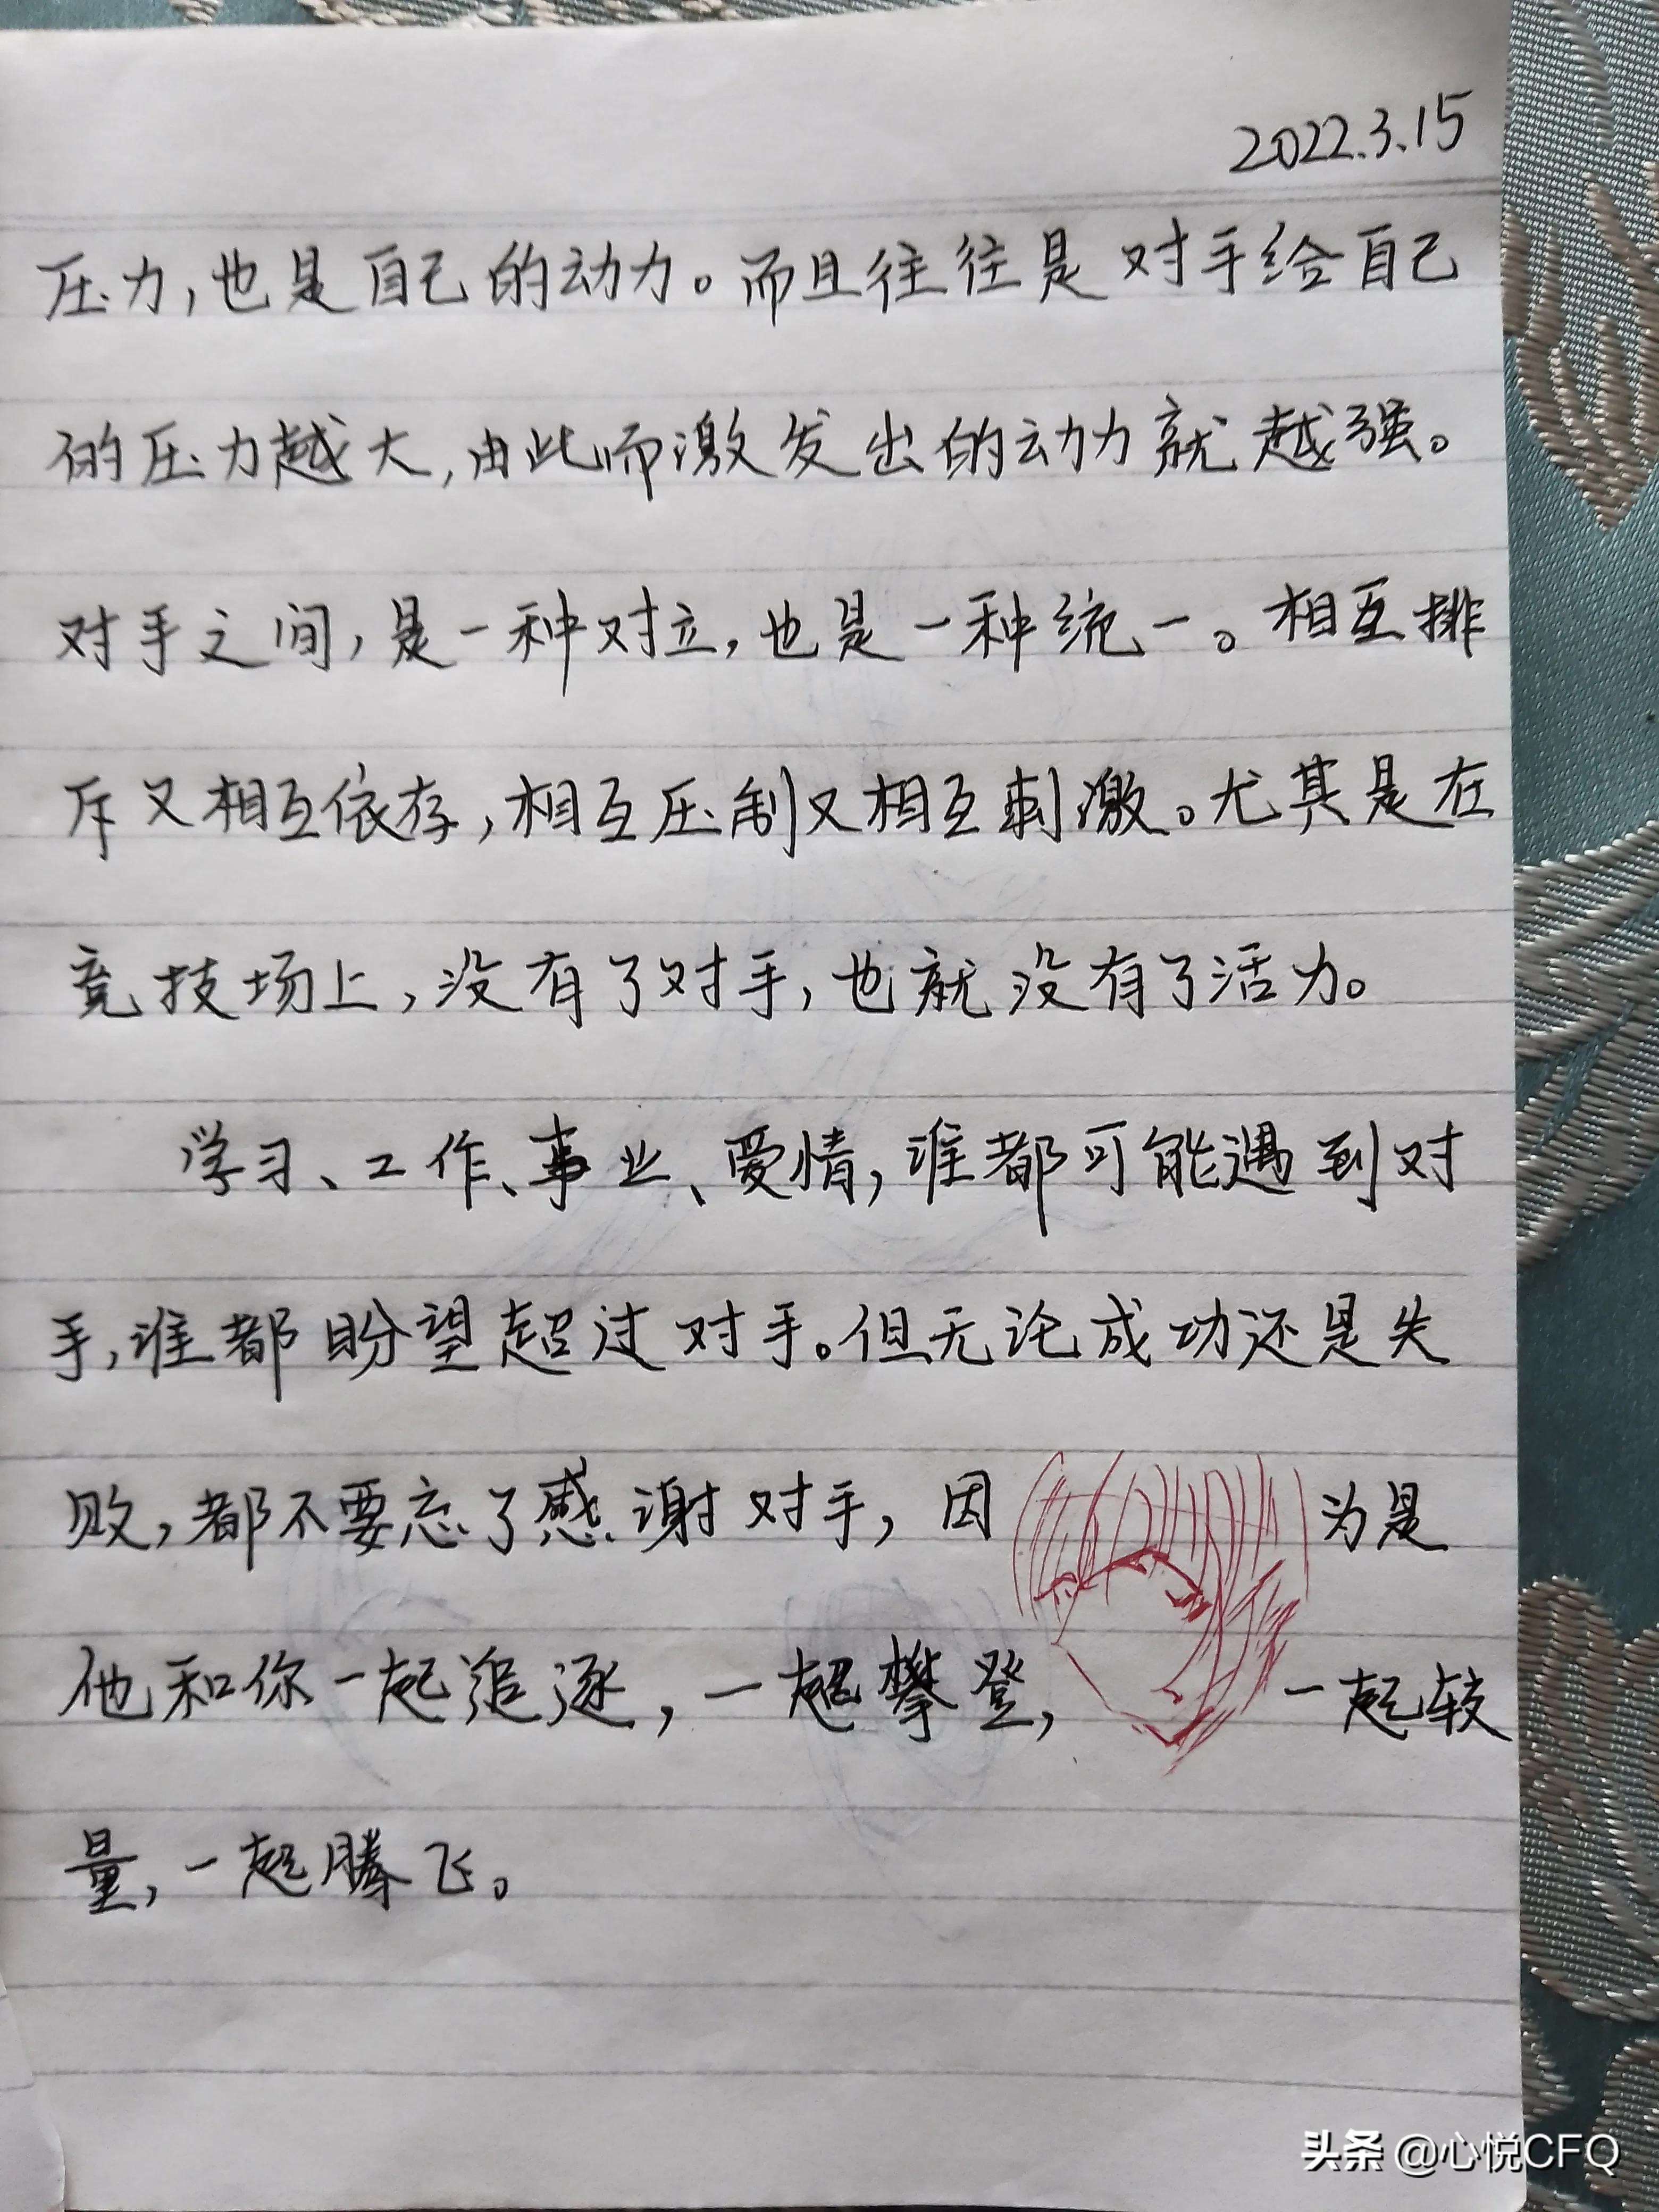 2022.3.15
压力,也是自己的动力。而且往往是对手给自己
的压力越大,由此而激发出的动力就越强。
对手之间,是一种对立,也是一种统一。相互排
斥又相互依存,相互压制又相互刺激。尤其是在
竞技场上,没有了对手,也就没有了活力。
学习、工作、事业、爱情,谁都可能遇到对
手,谁都盼望超过对手。但无论成功还是失
败,都不要忘了感谢对手,因为是
他和你一起追逐,一起攀登,一起较
量,一起腾飞。
头条 @心悦CFQ